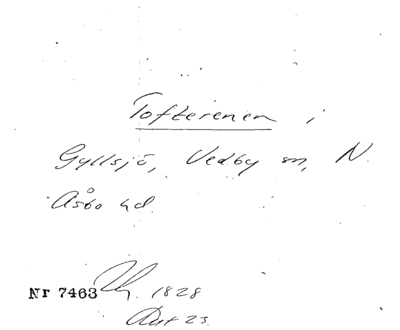 Tofterenen i
Gyllsjö, Vedby sn, N.
Åsbo hd.
Nr 7463
1828
23